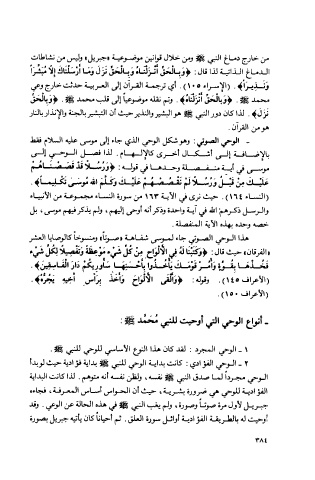 من خارج دماغ النبي ﷺ ومن خلال قوانين موضوعية «جبريل» وليس من نشاطات
الدماغ الذاتية لذا قال: ﴿وَبِالْحَقِّ أَنْزَلْنَاهُ وَبِالْحَقِّ نَزَلَ وَمَا أَرْسَلْنَاكَ إِلَّا مُبَشِّرًا
وَنَذِيرًا﴾. (الإسراء ١٠٥). أي ترجمة القرآن إلى العربية حدثت خارج وعي
محمد ﷺ. ﴿وَبِالْحَقِّ أَنْزَلْنَاهُ﴾. وتم نقله موضوعياً إلى قلب محمد ﷺ. ﴿وَبِالْحَقِّ
نَزَلَ﴾. لذا كان دور النبي ﷺ هو البشير والنذير حيث أن التبشير بالجنة والإنذار بالنار
هو من القرآن.
ـ الوحي الصوتي: وهو شكل الوحي الذي جاء إلى موسى عليه السلام فقط
بالإضافة إلى أشكال أخرى كالإلهام. لذا فصل الوحي إلى
موسى في آية منفصلة وحدها في قوله: ﴿وَرُسُلًا قَدْ قَصَصْنَاهُمْ
عَلَيْكَ مِنْ قَبْلُ وَرُسُلًا لَمْ نَقْصُصْهُمْ عَلَيْكَ وَكَلَّمَ اللَّهُ مُوسَىٰ تَكْلِيمًا﴾.
(النساء ١٦٤). حيث نرى في الآية ١٦٣ من سورة النساء مجموعة من الأنبياء
والرسل ذكرهم الله في آية واحدة وذكر أنه أوحى إليهم، ولم يذكر فيهم موسى، بل
خصه وحده بهذه الآية المنفصلة.
هذا الوحي الصوتي جاء لموسى شفاهة «صوتاً» ومنسوخاً كالوصايا العشر
«الفرقان» حيث قال: ﴿وَكَتَبْنَا لَهُ فِي الْأَلْوَاحِ مِنْ كُلِّ شَيْءٍ مَوْعِظَةً وَتَفْصِيلًا لِكُلِّ شَيْءٍ
فَخُذْهَا بِقُوَّةٍ وَأْمُرْ قَوْمَكَ يَأْخُذُوا بِأَحْسَنِهَا سَأُورِيكُمْ دَارَ الْفَاسِقِينَ﴾.
(الأعراف ١٤٥). وقوله: ﴿وَأَلْقَى الْأَلْوَاحَ وَأَخَذَ بِرَأْسِ أَخِيهِ يَجُرُّهُ﴾.
(الأعراف ١٥٠).
ـ أنواع الوحي التي أوحيت للنبي مُحَمَّد ﷺ:
١ ـ الوحي المجرد: لقد كان هذا النوع الأساسي للوحي للنبي ﷺ.
٢ ـ الوحي الفؤادي: كانت بداية الوحي للنبي ﷺ بداية فؤادية حيث لو بدأ
الوحي مجرداً لما صدق النبي ﷺ نفسه، ولظن نفسه أنه متوهم. لذا كانت البداية
الفؤادية للوحي هي ضرورة بشرية، حيث أن الحواس أساس المعرفة، فجاءه
جبريل لأول مرة صوتاً وصورة، ولم يغب النبي ﷺ في هذه الحالة عن الوعي. وقد
أوحيت له بالطريقة الفؤادية أوائل سورة العلق. ثم أحياناً كان يأتيه جبريل بصورة
٣٨٤